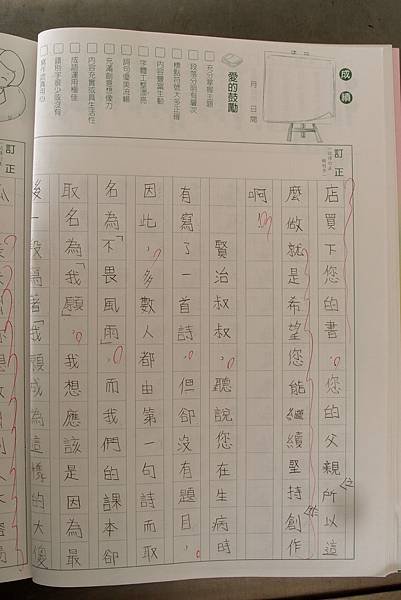 成績
月 日 閱
愛的鼓勵
充分掌握主題
段落分明有層次
標點符號大多正確
內容豐富生動
字體工整漂亮
詞句優美流暢
充滿創意想像力
內容充實或具生活性
成語運用極佳
錯別字很少或沒有
訂正
訂正
店買下您的書。您的父親所以這
麼做就是希望您能繼續堅持創作
啊!
賢治叔叔,聽說您在生病時
有寫了一首詩,但卻沒有題目,
因此,多數人都由第一句詩而取
名為「不畏風雨」。而我們的課本卻
取名為「我願」。我想應該是因為最
後一段寫著「我願成為這樣的大傻